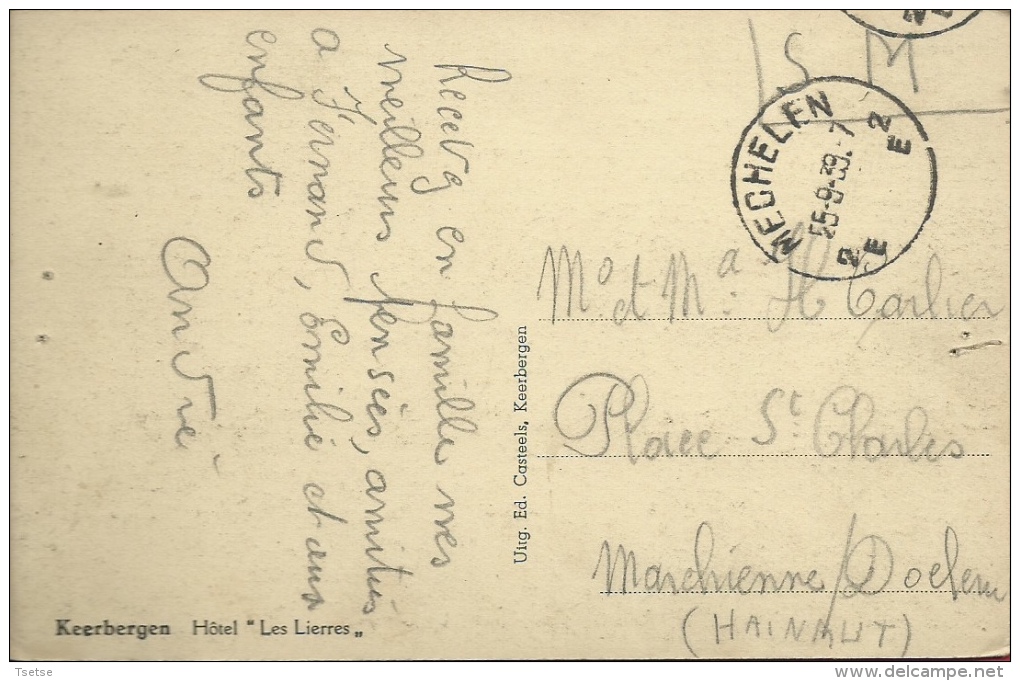 S M
MECHELEN
25-9-39.-7
2 E
2 E
Recevez en famille mes
meilleurs pensées, amitiés
a Fernand, Emilie et aux
enfants
André
Uitg. Ed. Casteels, Keerbergen
Mr et Ma H Carlier
Place St Charles
Marchienne/Docherie
(HAINAUT)
Keerbergen Hôtel "Les Lierres„
Tsetse
www.delcampe.net